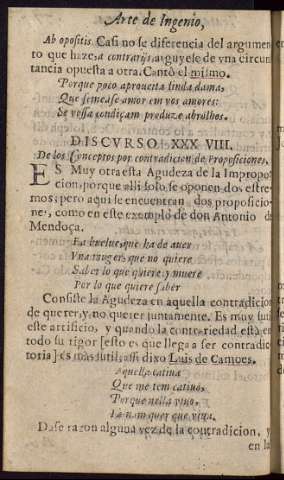 Arte de Ingenio,
Ab opositis Casi no se diferencia del argumen
to que haze, a contrarijs, arguyese de vna circun
tancia opuesta a otra. Cantò el mismo.
Porque poco aproueita linda dama,
Que semease amor em vos amores:
Se vossa condiçam produze abrolhes.
DISCVRSO XXXVIII.
De los Cõceptos por contradicion de Proposiciones.
ES Muy otra esta Agudeza de la Impropo
cion, porque alli solo se oponen dos estre
mos; pero aqui se encuentran dos proposicio-
nes, como en este exemplo de don Antonio de
Mendoça.
que ha de auer
Vna muger, que no quiere
Saber lo que quiere, y muere
Por lo que quiere saber
Consiste la Agudeza en aquella contradicion
de querer, y no querer juntamente. Es muy sutil
este artificio, y quando la contrariedad està en
todo su rigor [esto es que llega a ser contradic
toria] es mas sutil, assi dixo Luis de Camoes.
Aquella catiua
Que me tem catiuo,
Porque nella viuo,
Ia nam quer que viua.
Dase razon alguna vez de la contradicion, y
en la